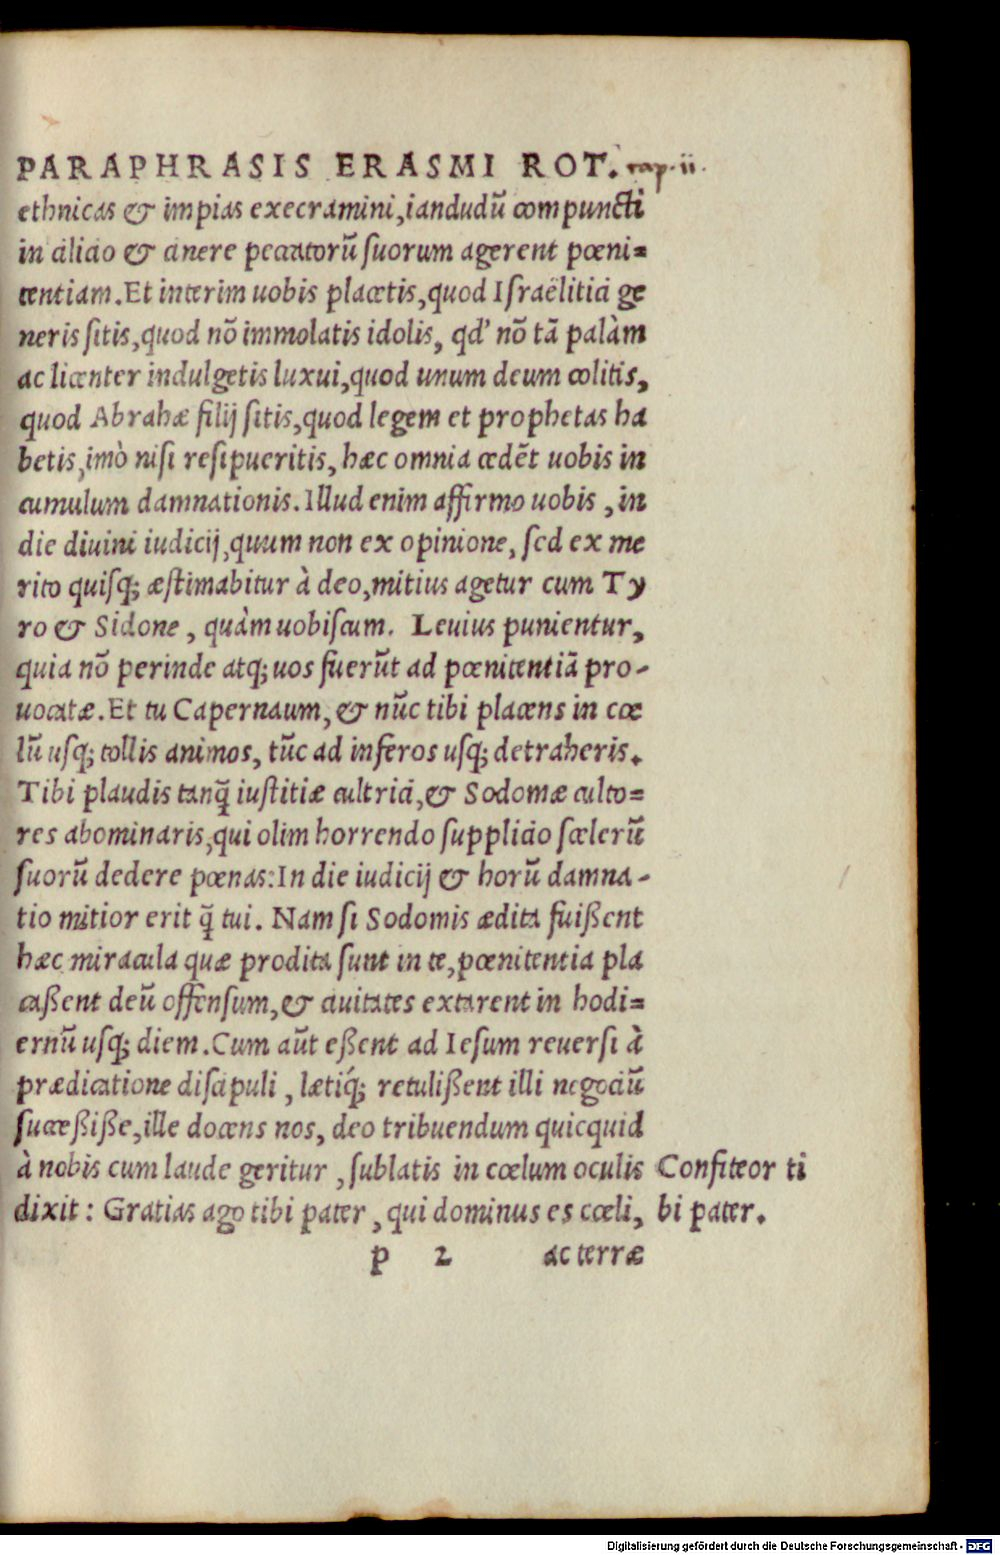 PARAPHRASIS ERASMI ROT. cap. ii.
ethnicas & impias execramini, iandudū compuncti
in cilicio & cinere peccatorū suorum agerent pœni=
tentiam. Et interim uobis placetis, quod Israëlitici ge
neris sitis, quod nō immolatis idolis, qd' nō tā palàm
ac licenter indulgetis luxui, quod unum deum colitis,
quod Abrahæ filij sitis, quod legem et prophetas ha
betis, imò nisi resipueritis, hæc omnia cedēt uobis in
cumulum damnationis. Illud enim affirmo uobis, in
die diuini iudicij, quum non ex opinione, sed ex me
rito quisq; æstimabitur à deo, mitius agetur cum Ty
ro & Sidone, quàm uobiscum. Leuius punientur,
quia nō perinde atq; uos fuerūt ad pœnitentiā pro-
uocatæ. Et tu Capernaum, & nūc tibi placens in cœ
lū usq; tollis animos, tūc ad inferos usq; detraheris.
Tibi plaudis tanq̃ iustitiæ cultrici, & Sodomæ culto=
res abominaris, qui olim horrendo supplicio scelerū
suorū dedere pœnas: In die iudicij & horū damna-
tio mitior erit q̃ tui. Nam si Sodomis ædita fuißent
hæc miracula quæ prodita sunt in te, pœnitentia pla
caßent deū offensum, & ciuitates extarent in hodi=
ernū usq; diem. Cum aūt eßent ad Iesum reuersi à
prædicatione discipuli, lætiq́; retulißent illi negociū
succeßiße, ille docens nos, deo tribuendum quicquid
à nobis cum laude geritur, sublatis in cœlum oculis
dixit: Gratias ago tibi pater, qui dominus es cœli,
Confiteor ti
bi pater.
p 2 ac terræ
Digitalisierung gefördert durch die Deutsche Forschungsgemeinschaft - DFG